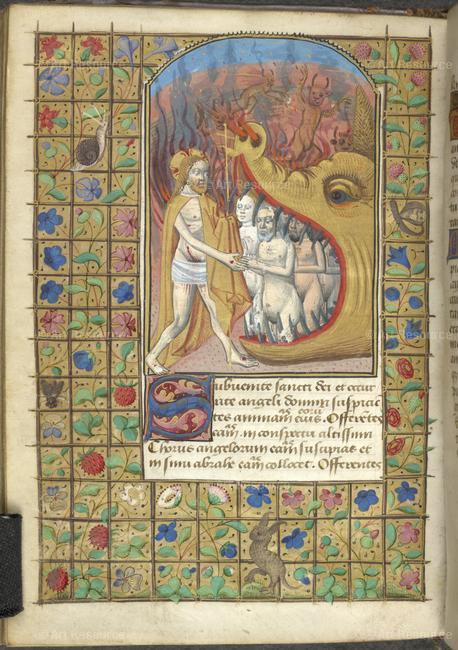 Subuenite sancti dei et occur
rite angeli domini suscipien
tes animam eius. Offerentes
eam. in conspectu altissimi
Chorus angelorum eam suscipiat et
in sinu abrahe eam collocet. Offerentes
© Art Resource